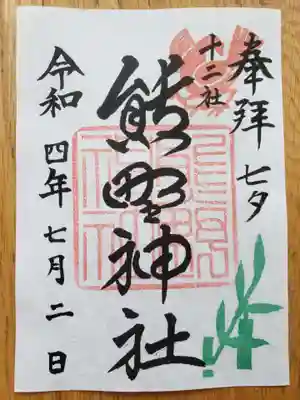 奉拝 七夕
十二社
熊野神社
令和四年七月二日